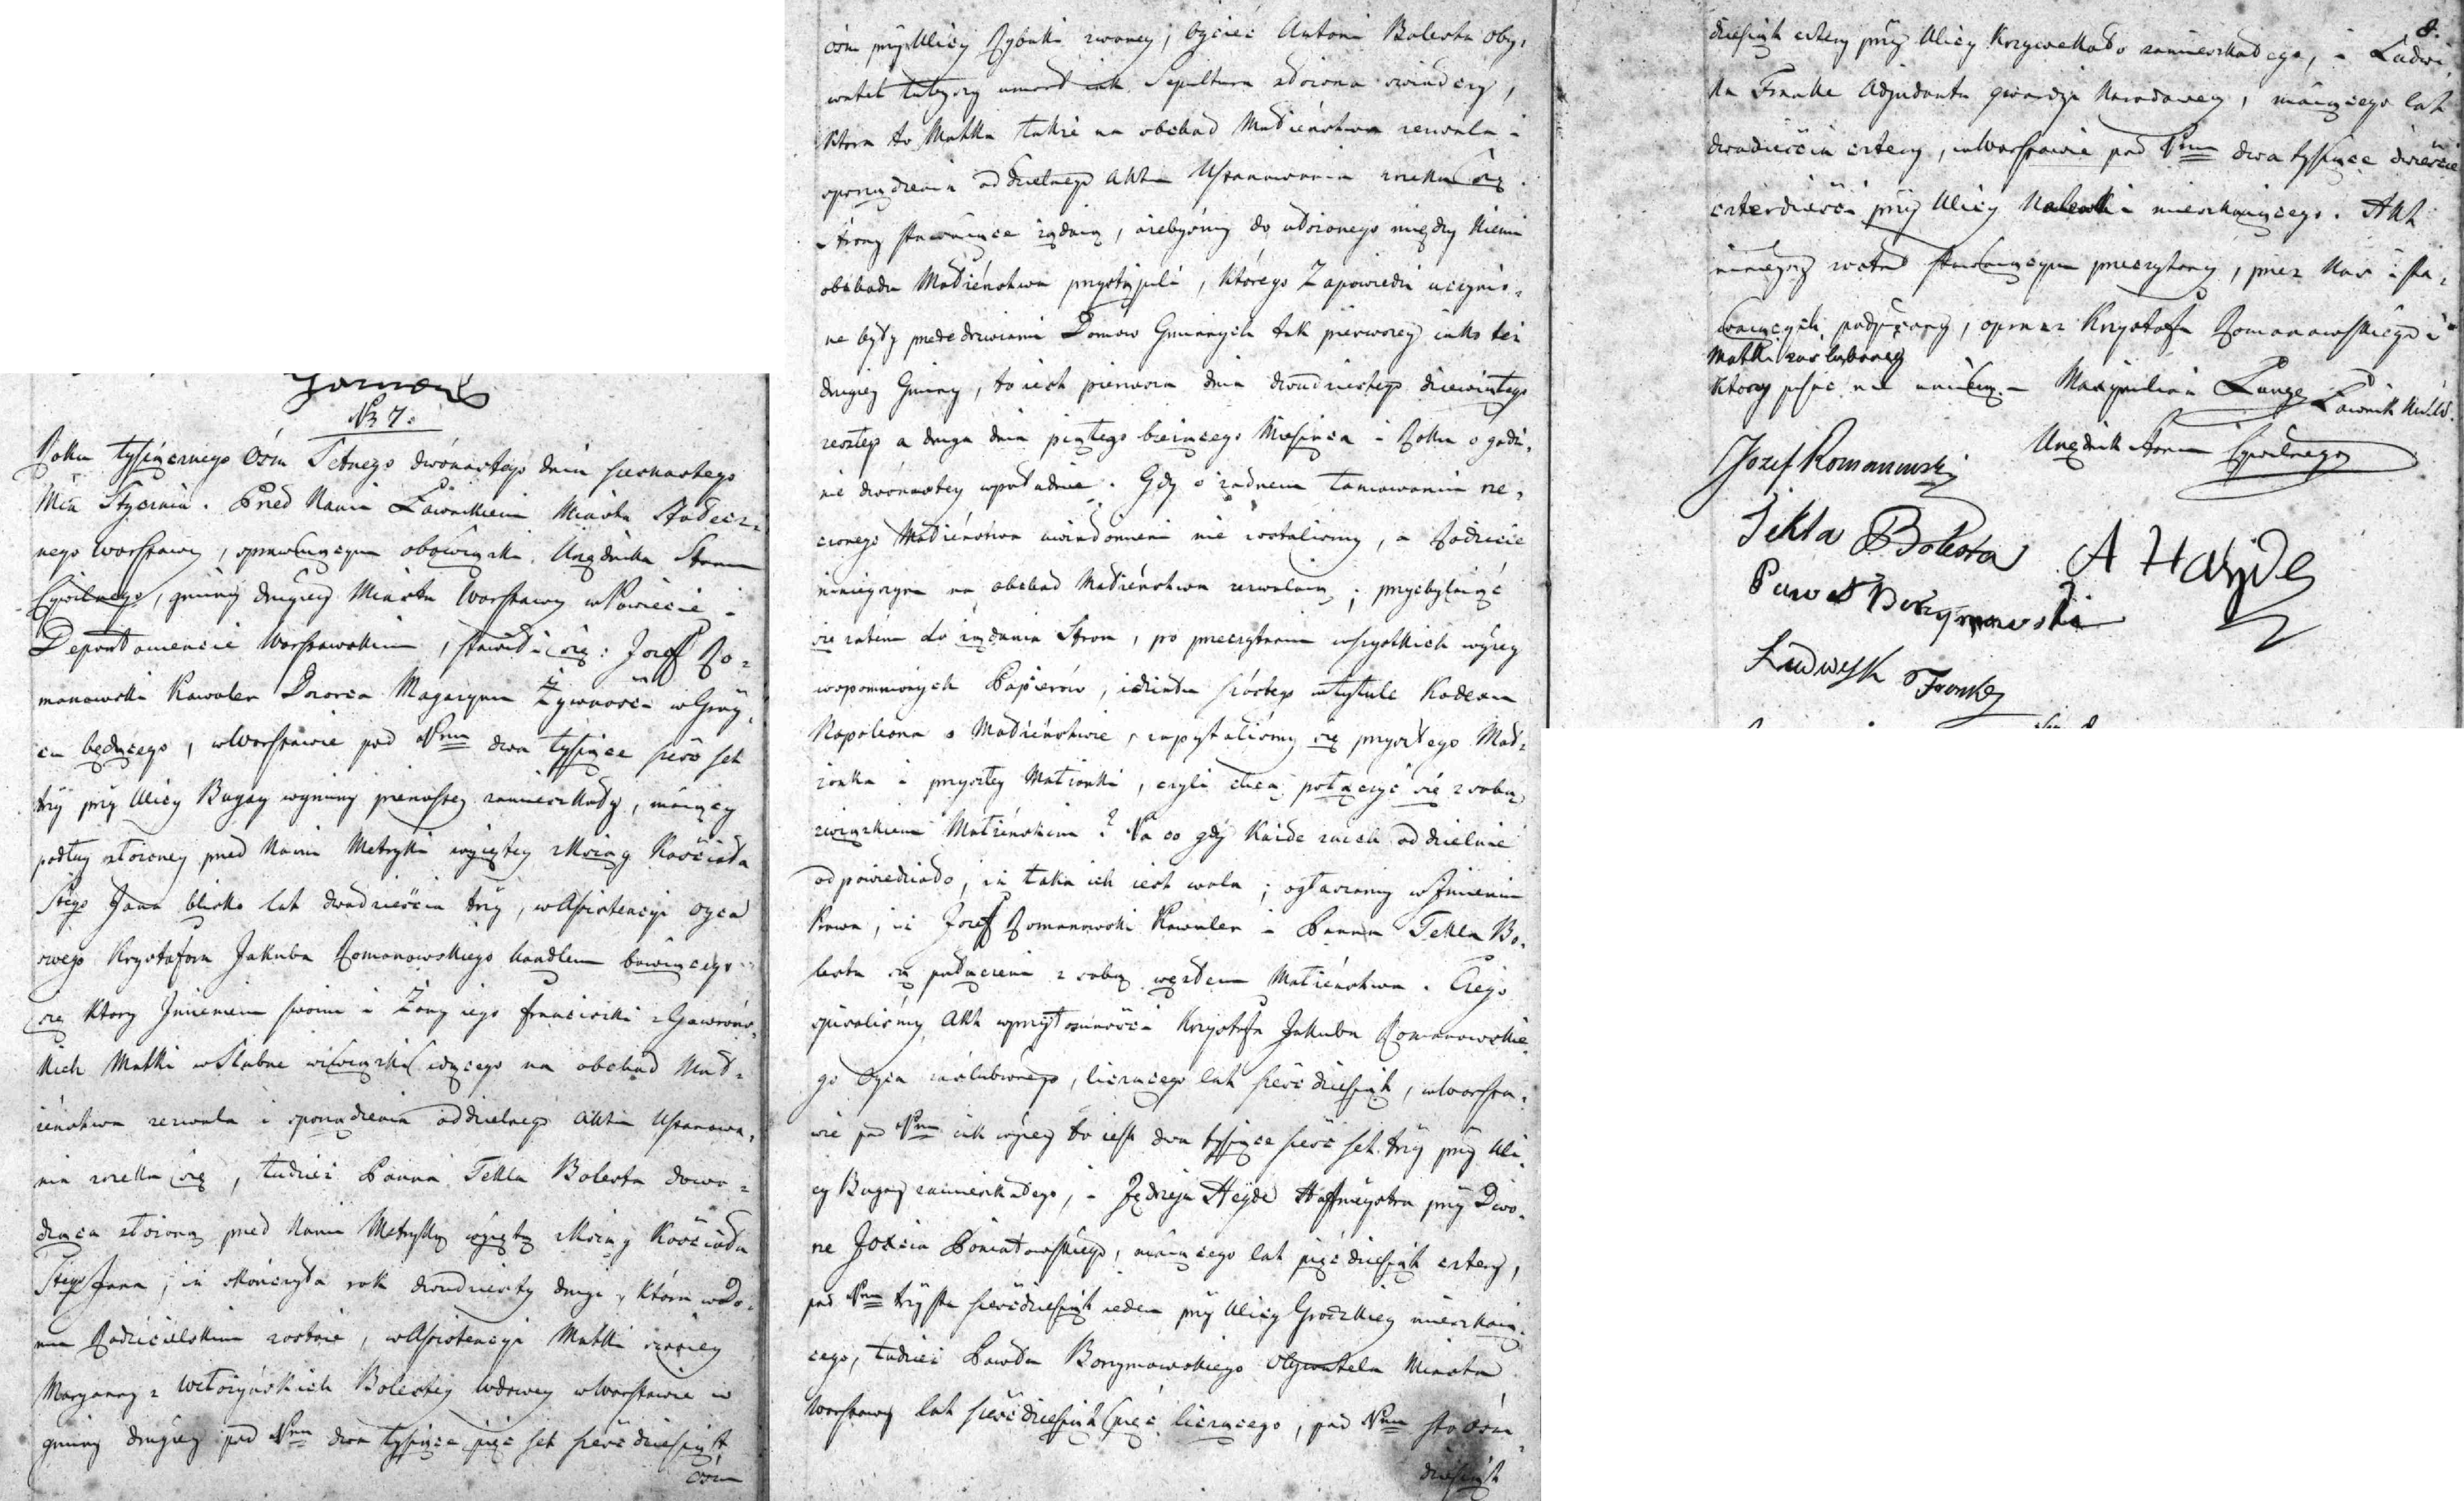 No 7.
Roku tysiącznego Osm Setnego dwónastego dnia siesnastego
Mca Stycznia. Przed Nami Ławnikiem Miasta Stołecz-
nego Warszawy, sprawuiącym obowiązki Urzędnika Stanu
Cywilnego, gminy drugiey Miasta Warszawy w Powiecie i
Departamencie Warszawskim, stawił się: Jozef Ro-
manowski Kawaler Dozorca Magazynu Żywności w Gróy-
cu będącego, w Warszawie pod Nrem dwa tysiące sześć set
trzy przy Ulicy Bugay w gminy pierwszey zamieszkały, maiący
podług złożoney przed Nami Metryki wyiętey z Xiąg Kościoła
Stego Jana blisko lat dwadzieścia trzy, w Assistencyi oyca
swego Krysztofora Jakuba Romanowskiego handlem bawiącego
się ktory Imieniem swoim i Żony iego Franciszki z Gawrońs-
kich Matki w Slubne związki idącego na obchod Mał-
żeństwa zezwala i sporządzenia oddzielnego Aktu Uszanowa-
nia zrzeka się, tudzież Panna Tekla Bolesta dowo-
dząca złożoną przed Nami Metryką wyiętą z Xiąg Kościoła
Stego Jana, iż skończyła rok dwudziesty drugi, która w do-
mu Rodzicielskim zostaie, w Assistencyi Matki swoiey
Maryanny z Witoszyńskich Bolestey wdowy w Warszawie w
gminy drugiey pod Nrem dwa tysiące pięć set sześćdziesiąt
osm
osm przy Ulicy Rybaki zwaney, oyciec Antoni Bolesta oby-
watel tuteyszy umarł iak Sepultura złożona swiadczy,
ktora to Matka także na obchod Małżeństwa zezwala i
sporządzenia oddzielnego Aktu Uszanowania zrzeka się.
Strony stawaiące żądaią, ażebyśmy do ułożonego między niemi
obchodu Małżeństwa przystąpili, którego Zapowiedzi uczynio-
ne były przede drzwiami Domow Gminnych tak pierwszey iako też
drugiey Gminy, to iest pierwsza dnia dwudziestego dziewiątego
zeszłego a druga dnia piątego bieżącego Miesiąca i Roku o godzi-
nie dwónastey w południe. Gdy o żadnem tamowaniu rze-
czonego Małżeństwa uwiadomieni nie zostaliśmy, a Rodzice
ninieyszym na obchod Małżeństwa zezwalaią; przychylaiąc
się zatem do żądania Stron, po przeczytaniu wszystkich wyżey
wspomnionych Papierów, i działu szóstego w tytule Kodexu
Napoleona o Małżeństwie, zapytaliśmy się przyszłego Mał-
żonka i przyszłey Małżonki, czyli chcą połączyć się z sobą
związkiem Małżeńskim? Na co gdy każde z nich oddzielnie
odpowiedziało, iż taka ich iest wola; ogłaszamy w Imieniu
Prawa, iż Jozef Romanowski Kawaler i Panna Tekla Bo-
lesta są połączeni z sobą węzłem Małżeństwa. Czego
spisaliśmy Akt w przytomności Krzysztofa Jakuba Romanowskie-
go Oyca zaślubionego, liczącego lat sześćdziesiąt, w Warsza-
wie pod Nrem iak wyżey to iest dwa tysiące sześć set trzy przy Uli-
cy Bugay zamieszkałego, i Jędrzeja Heyde Hoffmeystra przy Dwo-
rze Joxcia Poniatowskiego, maiącego lat pięćdziesiąt cztery,
pod Nrem trzysta sześćdziesiąt ieden przy Ulicy Grodzkiey mieszkaią-
cego, tudzież Pawła Borzymowskiego Obywatela Miasta
Warszawy lat sześćdziesiąt pięć liczącego, pod Nrem sto osm-
dziesiąt
8.
dziesiąt cztery przy Ulicy Krzywekoło zamieszkałego, i Ludwi-
ka Franke Adjudanta gwardyi Narodowey, maiącego lat
dwadzieścia cztery, w Warszawie pod Nrem dwa tysiące dwieście
czterdzieści przy Ulicy Nalewki mieszkaiącego. Akt
ninieyszy został stawaiącym przeczytany, przez Nas i sta-
waiących podpisany, oprocz Krzysztofa Romanowskiego i
Matki zaslubioney
ktorzy pisać nie umieią. Maxymilian Lange Ławnik
Urzędnik Stanu Cywilnego
Jozef Romanowski
Tekla Bolesta A Hayde
Paweł Borzymowski
Ludwyk Franke